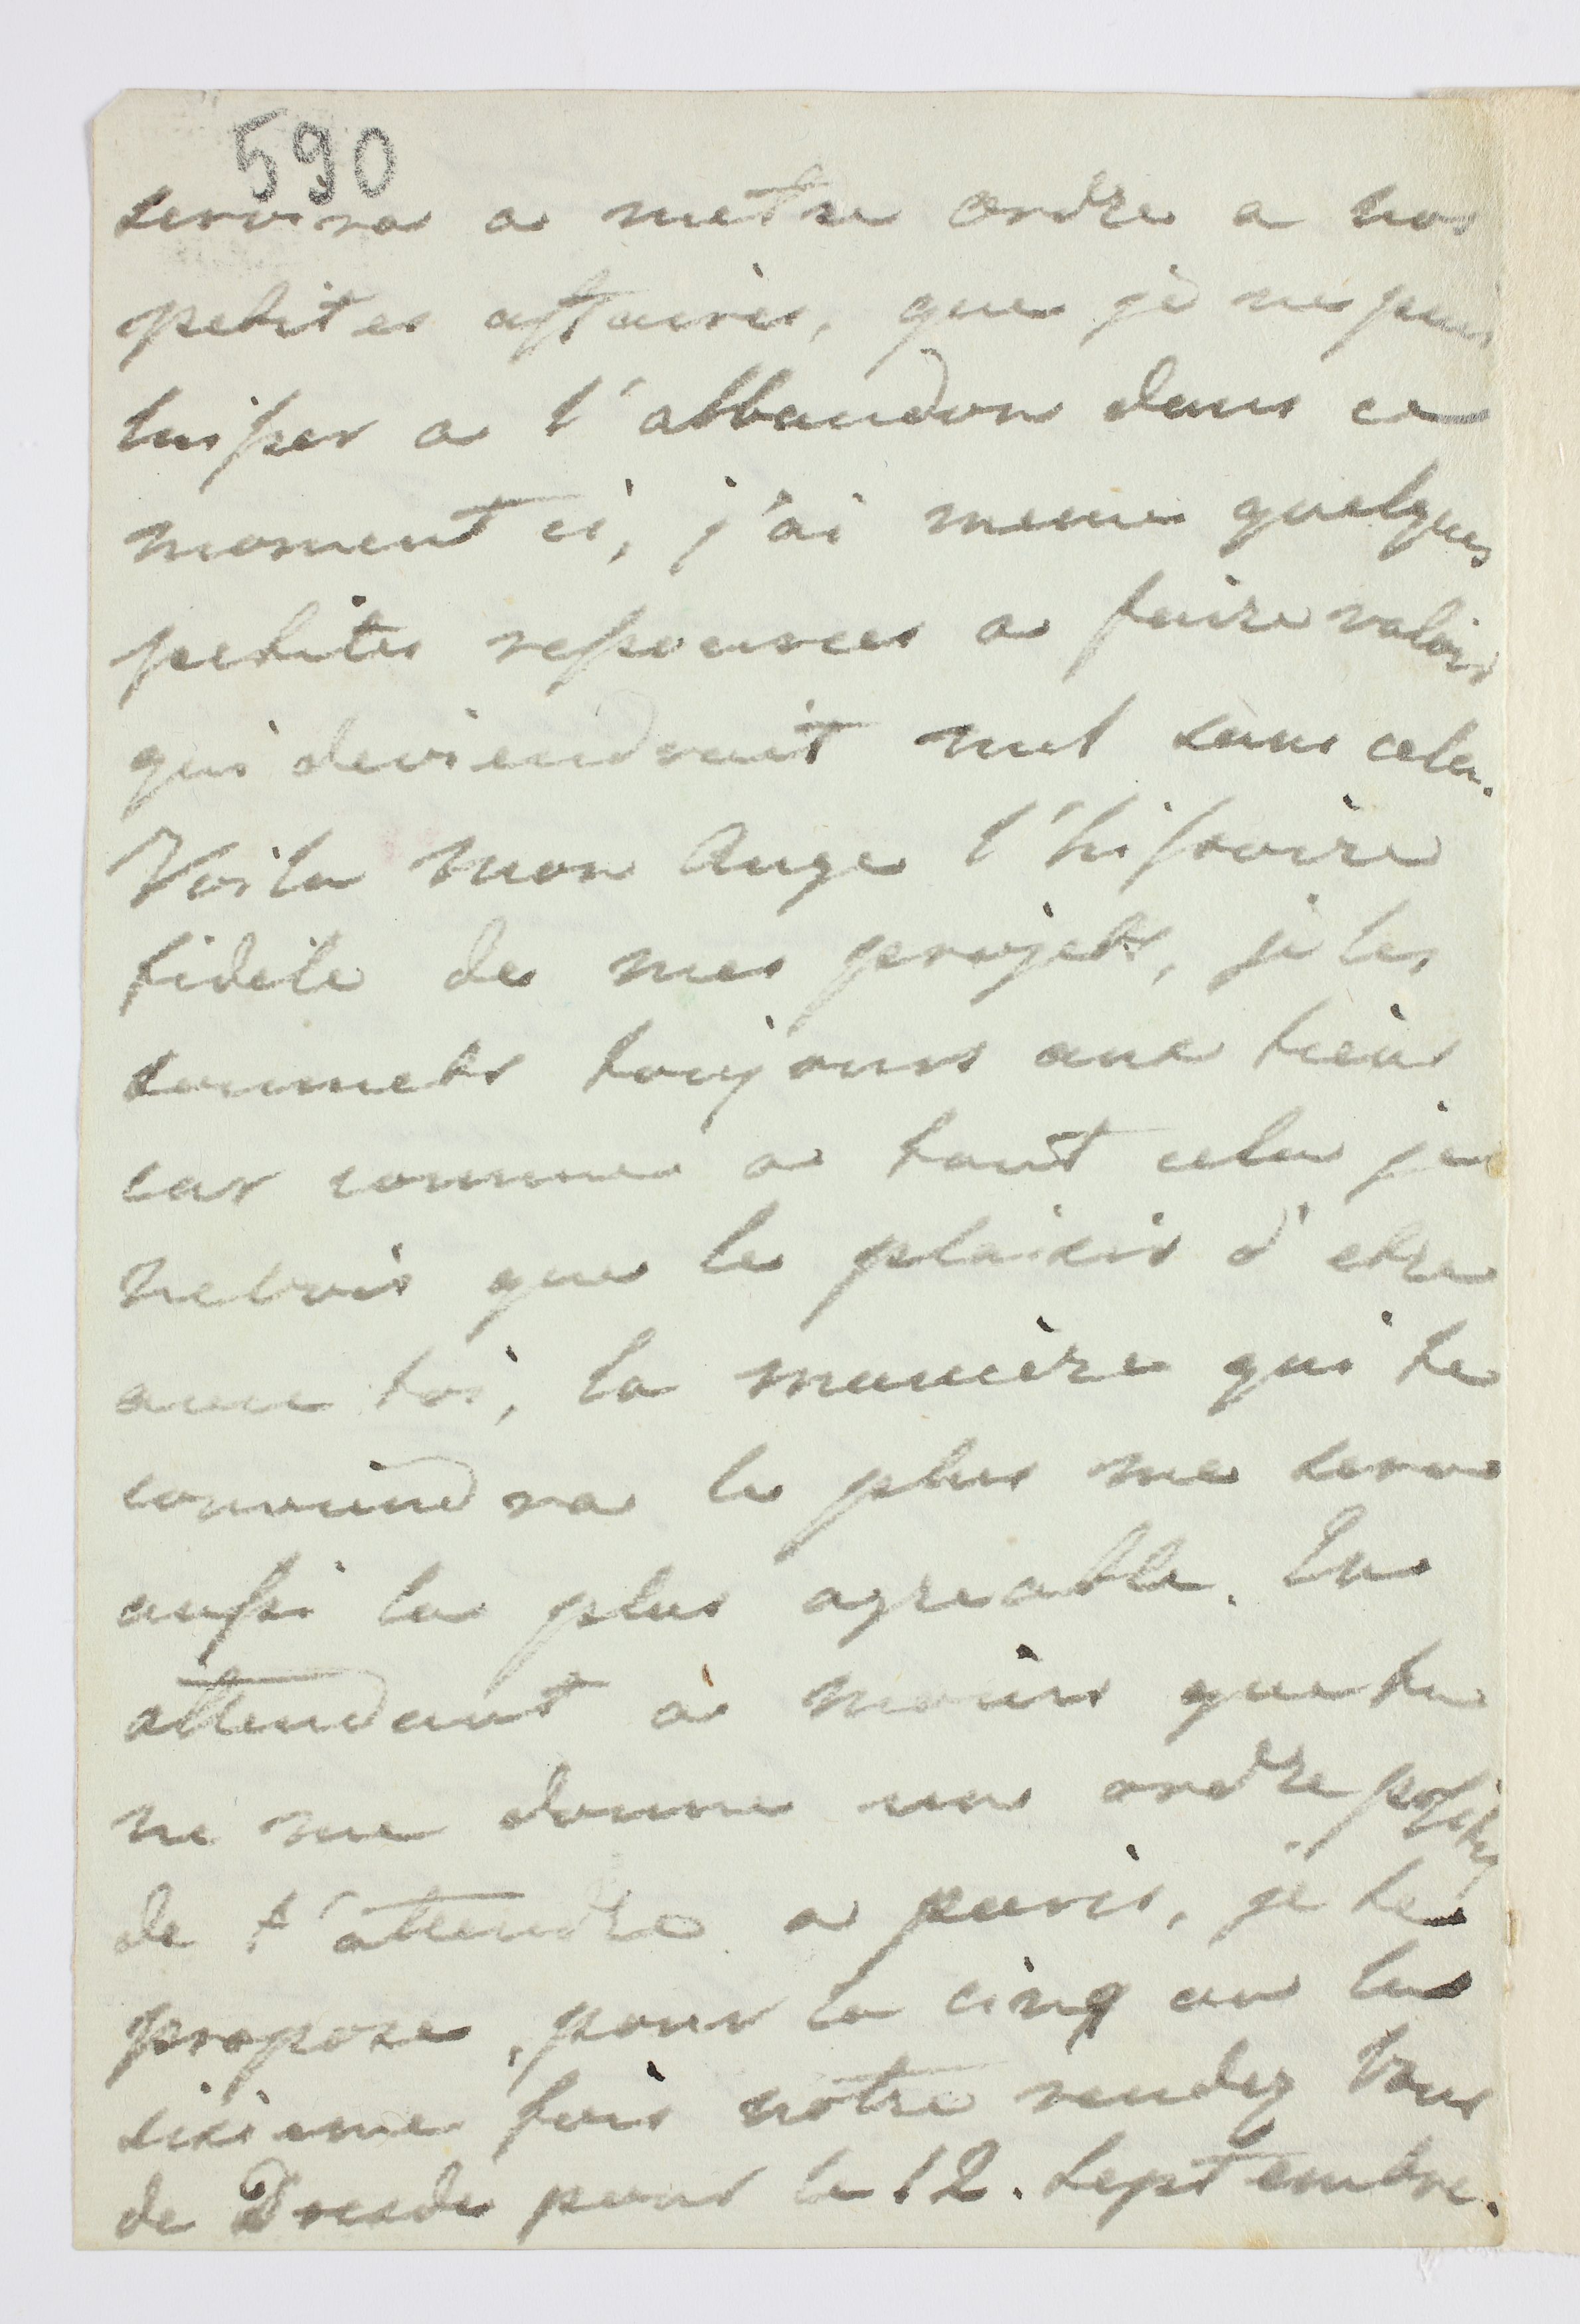 590
servira a metre ordre a nos
petites affaires, que je ne puis
laisser a l'abbandon dans ce
moment ci, j'ai meme quelques
petites ressources a faire valoir
qui deviendrait nul sans cela.
Voila mon Ange l'histoire
fidele de mes projets, je les
soumets toujours aux tiens
car comme a tout cela je
ne vois que le plaisir d'etre
avec toi, la manière qui te
conviendra le plus me sera
aussi la plus agreable. En
attendant a moins que tu
ne me donne un ordre positif
de t'attendre a paris, je te
propose, pour la cinq ou la
sixieme fois notre rendez vous
de Dresde pour le 12. Septembre.